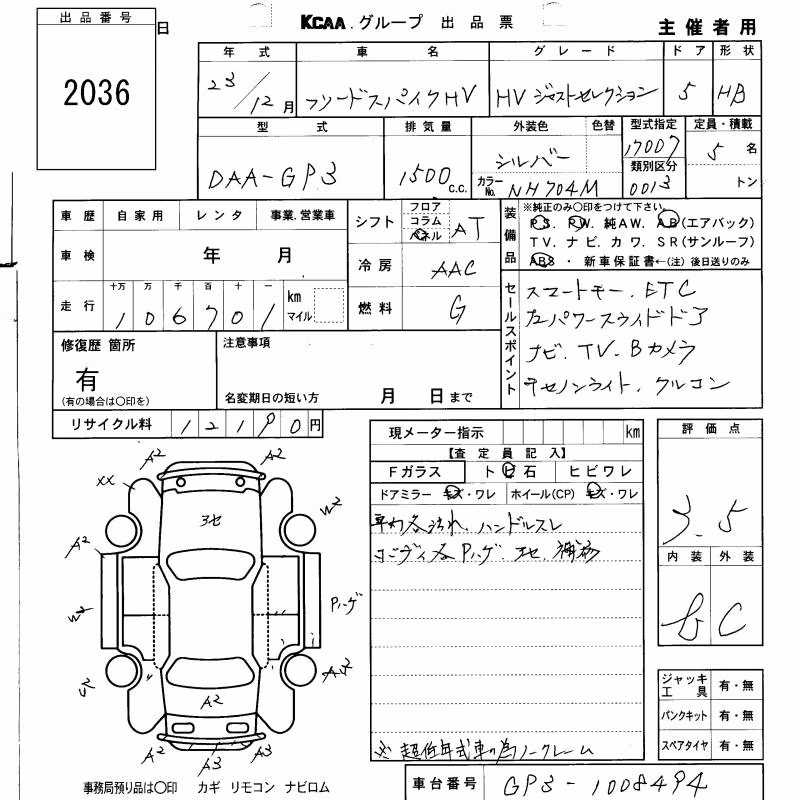 出品番号
2036
日
KCAA.グループ 出品票
主催者用
年式 車名 グレード ドア 形状
23/12月 フリードスパイクHV HV ジャストセレクション 5 HB
型式 排気量 外装色 色替 型式指定 定員・積載
DAA-GP3 1500c.c. シルバー 17007 5名
カラーNo. NH704M 類別区分 0013 トン
車歴 自家用 レンタ 事業.営業車
車検 年 月
走行 十万 万 千 百 十 一
106701 km マイル
シフト フロア コラム パネル AT
冷房 AAC
燃料 G
装備品 ※純正のみ〇印をつけて下さい。
P.S. P.W. 純AW. A.B(エアバック)
T V. ナビ. カワ. S R(サンルーフ)
ABS ・ 新車保証書←(注)後日送りのみ
セールスポイント
スマートキー. ETC
左パワースライドドア
ナビ. TV. Bカメラ
キセノンライト. クルコン
修復歴 箇所
有
(有の場合は〇印を)
注意事項
名変期日の短い方 月 日まで
リサイクル料 12190円
現メーター指示 km
【査定員記入】
Fガラス トビ石 ヒビワレ
ドアミラー キズ・ワレ ホイール(CP) キズ・ワレ
ハンドルスレ
Pハゲ
※ 超低年式車の為ノークレーム
評価点
3.5
内装 外装
b C
ジャッキ工具 有・無
パンクキット 有・無
スペアタイヤ 有・無
A2 A2
XX W2
A2
W2 Pハゲ
A2
A2 A3 A3
事務局預り品は〇印 カギ リモコン ナビロム
車台番号 GP3-1008494